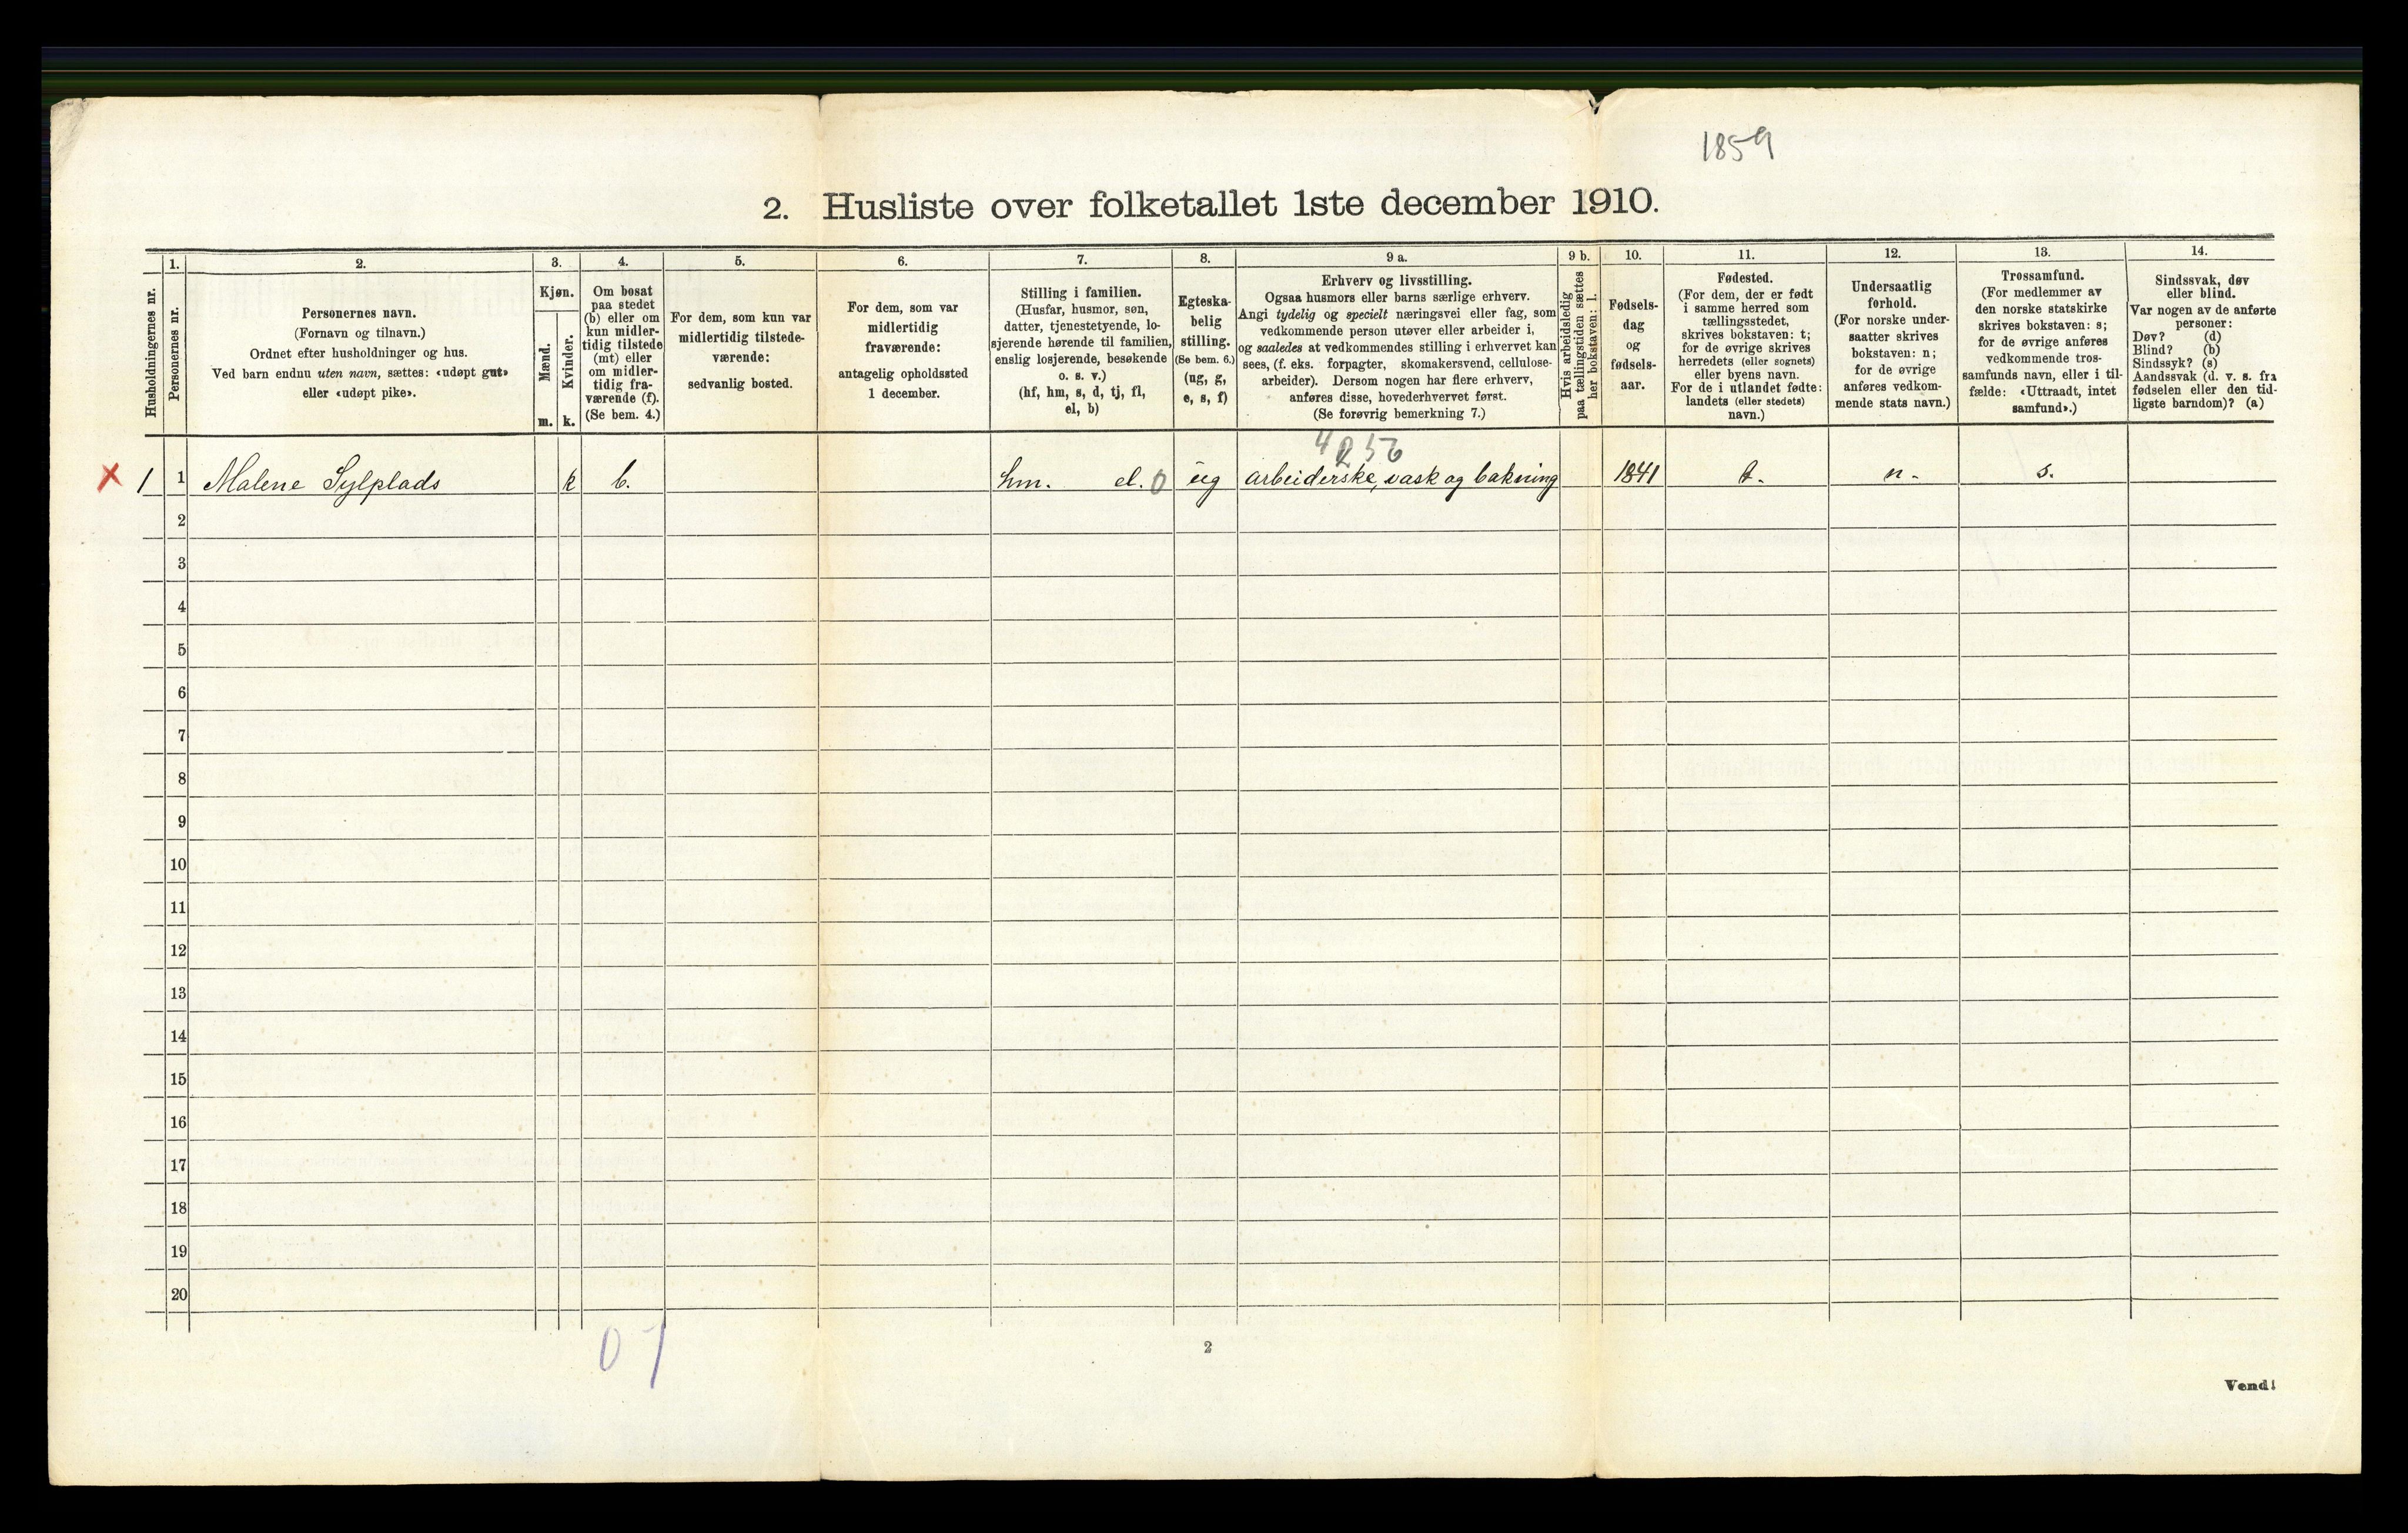 1859
2. Husliste over folketallet 1ste december 1910.
Husholdningernes nr.
1.
Personernes nr.
2.
Personernes navn.
(Fornavn og tilnavn.)
Ordnet efter husholdninger og hus.
Ved barn endnu uten navn, sættes: «udøpt gut»
eller «udøpt pike».
3.
Kjøn.
Mænd.
m.
Kvinder.
k.
4.
Om bosat
paa stedet
(b) eller om
kun midler-
tidig tilstede
(mt) eller
om midler-
tidig fra-
værende (f).
(Se bem. 4.)
5.
For dem, som kun var
midlertidig tilstede-
værende:
sedvanlig bosted.
6.
For dem, som var
midlertidig
fraværende:
antagelig opholdssted
1 december.
7.
Stilling i familien.
(Husfar, husmor, søn,
datter, tjenestetyende, lo-
sjerende hørende til familien,
enslig losjerende, besøkende
o. s. v.)
(hf, hm, s, d, tj, fl,
el, b)
8.
Egteska-
belig
stilling.
(Se bem. 6.)
(ug, g,
e, s, f)
9 a.
Erhverv og livsstilling.
Ogsaa husmors eller barns særlige erhverv.
Angi tydelig og specielt næringsvei eller fag, som
vedkommende person utøver eller arbeider i,
og saaledes at vedkommendes stilling i erhvervet kan
sees, (f. eks. forpagter, skomakersvend, cellulose-
arbeider). Dersom nogen har flere erhverv,
anføres disse, hovederhvervet først.
(Se forøvrig bemerkning 7.)
9 b.
Hvis arbeidsledig
paa tællingstiden sættes
her bokstaven: l.
10.
Fødsels-
dag
og
fødsels-
aar.
11.
Fødested.
(For dem, der er født
i samme herred som
tællingsstedet,
skrives bokstaven: t;
for de øvrige skrives
herredets (eller sognets)
eller byens navn.
For de i utlandet fødte:
landets (eller stedets)
navn.)
12.
Undersaatlig
forhold.
(For norske under-
saatter skrives
bokstaven: n;
for de øvrige
anføres vedkom-
mende stats navn.)
13.
Trossamfund.
(For medlemmer av
den norske statskirke
skrives bokstaven: s;
for de øvrige anføres
vedkommende tros-
samfunds navn, eller i til-
fælde: «Uttraadt, intet
samfund».)
14.
Sindssvak, døv
eller blind.
Var nogen av de anførte
personer:
Døv? (d)
Blind? (b)
Sindssyk? (s)
Aandssvak (d. v. s. fra
fødselen eller den tid-
ligste barndom)? (a)
4256
x 1 1 Malene Sylplads k b. hm. el. 0 ug arbeiderske, vask og bakning 1841 t. n. s.
2
3
4
5
6
7
8
9
10
11
12
13
14
15
16
17
18
19
20
0 1
2
Vend!